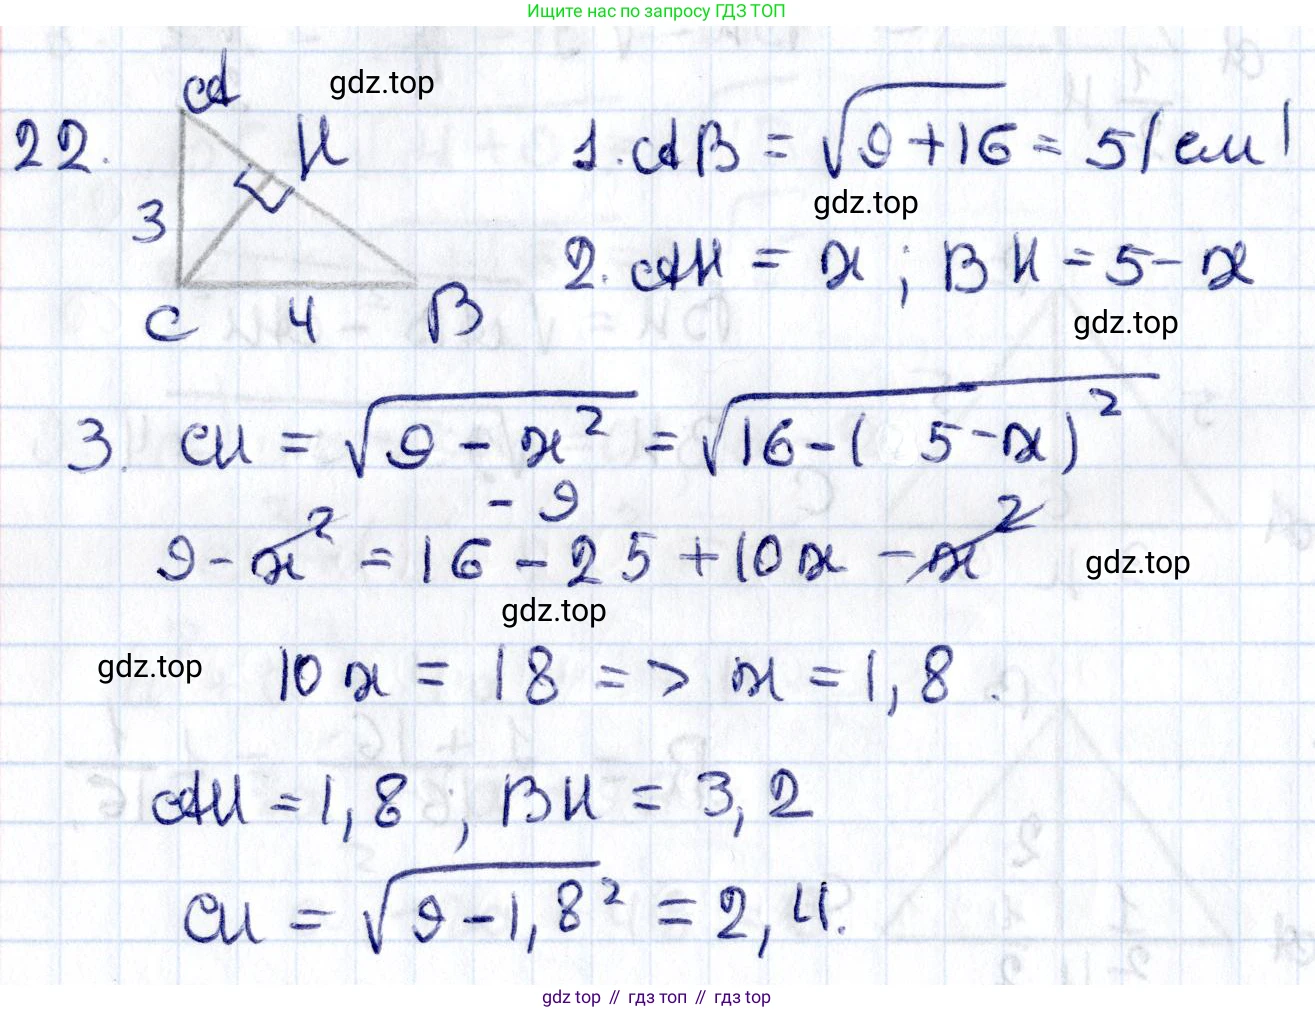 Ищите нас по запросу ГДЗ ТОП
22.
A
H
3
C 4 B
gdz.top
1. AB = √(9+16) = 5 (см)
gdz.top
2. AH = x ; BH = 5 - x
gdz.top
3. CH = √(9 - x²) = √(16 - (5 - x)²)
- 9
9 - x² = 16 - 25 + 10x - x²
gdz.top
gdz.top
gdz.top
10x = 18 => x = 1,8.
AH = 1,8 ; BH = 3,2
CH = √(9 - 1,8²) = 2,4.
gdz top // гдз топ // gdz top